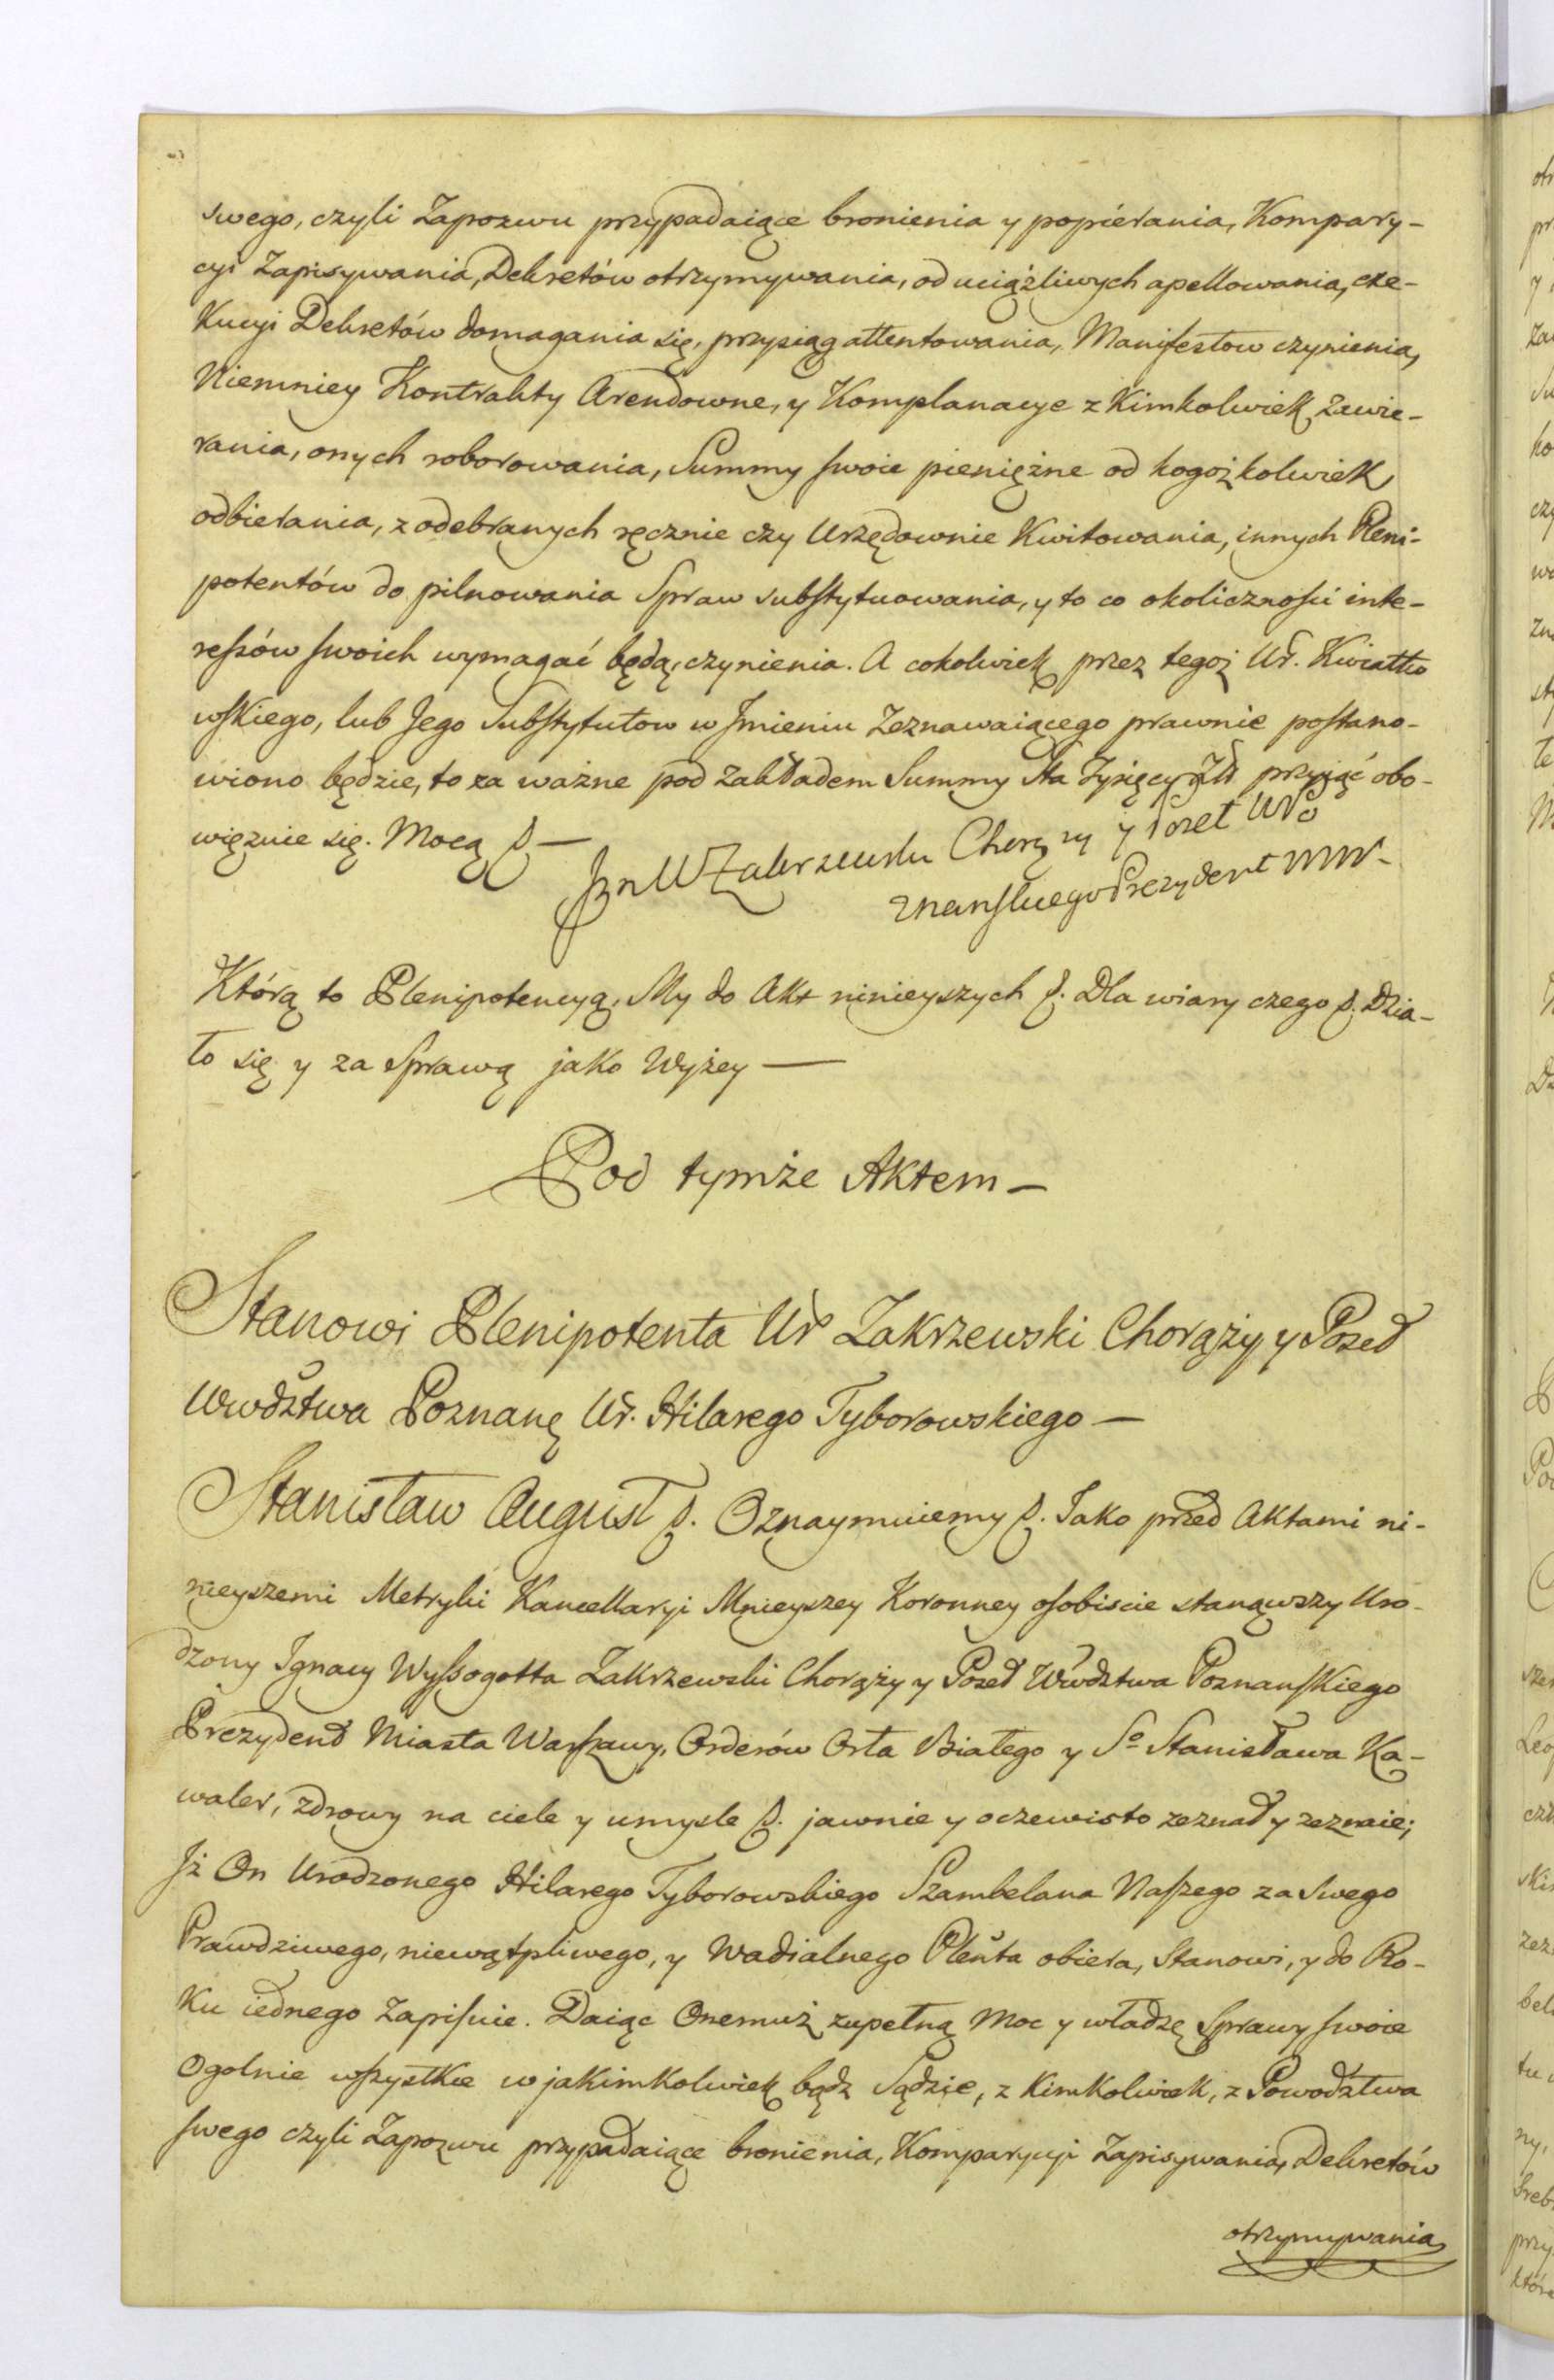 swego, czyli Zapozwu przypadaiące bronienia y popiérania, Kompary-
cyi Zapisywania, Dekretów otrzymywania, od uciążliwych apellowania, exe-
Kucyi Dekretów domagania się, przysiąg attentowania, Manifestow czynienia,
Niemniey Kontrakty Arendowne, y Komplanacye z Kimkolwiek zawie-
rania, onych roborowania, Summy swoie pieniężne od kogożkolwiek
odbierania, z odebranych ręcznie czy Urzędownie Kwitowania, innych Pleni-
potentów do pilnowania Spraw substytuowania, y to co okoliczności inte-
ressów swoich wymagać będą, czynienia. A cokolwiek przez tegoż Ur. Kwiatko
wskiego, lub Jego Substytutow w Imieniu Zeznawaiącego prawnie postano-
wiono będzie, to za ważne pod zakładem Summy Sta Tysięcy Złł przyiąć obo-
więzuie się. Mocą p. —
Ign W Zakrzewski Chorąży y Poseł WPo
znanskiego Prezydent MW-
Którą to Plenipotencyą, My do Akt ninieyszych p. Dla wiary czego p. Dzia-
ło się y za Sprawą jako Wyżey —
Pod tymże Aktem —
Stanowi Plenipotenta Ur Zakrzewski Chorąży y Poseł
Wwdztwa Poznang Ur. Hilarego Tyborowskiego —
Stanisław August p. Oznaymuiemy p. Jako przed Aktami ni-
nieyszemi Metryki Kancellaryi Mnieyszey Koronney osobiscie stanąwszy Uro-
dzony Ignacy Wyssogotta Zakrzewski Chorąży y Poseł Wwdztwa Poznanskiego
Prezydent Miasta Warszawy, Orderów Orła Białego y So Stanisława Ka-
waler, zdrowy na ciele y umysle p. jawnie y oczewisto zeznał y zeznaie;
Iż On Urodzonego Hilarego Tyborowskiego Szambelana Naszego za swego
Prawdziwego, niewątpliwego, y Wadialnego Plenta obiera, Stanowi, y do Ro-
Ku iednego Zapisuie. Daiąc Onemuż zupełną Moc y władzę Sprawy swoie
Ogolnie wszystkie w jakimkolwiek bądz Sądzie, z Kimkolwiek, z Powodztwa
swego czyli Zapozwu przypadaiące bronienia, Komparycyi Zapisywania, Dekretów
otrzymywania